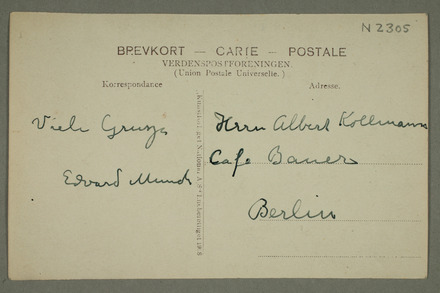 N 2305
BREVKORT — CARTE — POSTALE
VERDENSPOSTFORENINGEN.
(Union Postale Universelle.)
Korrespondance
Adresse.
Viele Grüsse
Edvard Munch
Herrn Albert Kollmann
Cafe Bauer
Berlin